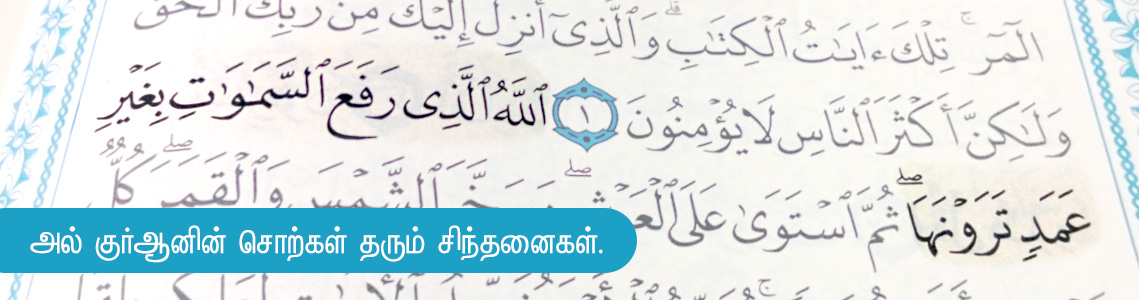 الٓمٓر ۚ تِلْكَ ءَايَٰتُ ٱلْكِتَٰبِ ۗ وَٱلَّذِىٓ أُنزِلَ إِلَيْكَ مِن رَّبِّكَ ٱلْحَقُّ
وَلَٰكِنَّ أَكْثَرَ ٱلنَّاسِ لَا يُؤْمِنُونَ ١ ٱللَّهُ ٱلَّذِى رَفَعَ ٱلسَّمَٰوَٰتِ بِغَيْرِ
عَمَدٍ تَرَوْنَهَا ۖ ثُمَّ ٱسْتَوَىٰ عَلَى ٱلْعَرْشِ ۖ وَسَخَّرَ ٱلشَّمْسَ وَٱلْقَمَرَ ۖ كُلٌّ
அல் குர்ஆனின் சொற்கள் தரும் சிந்தனைகள்.